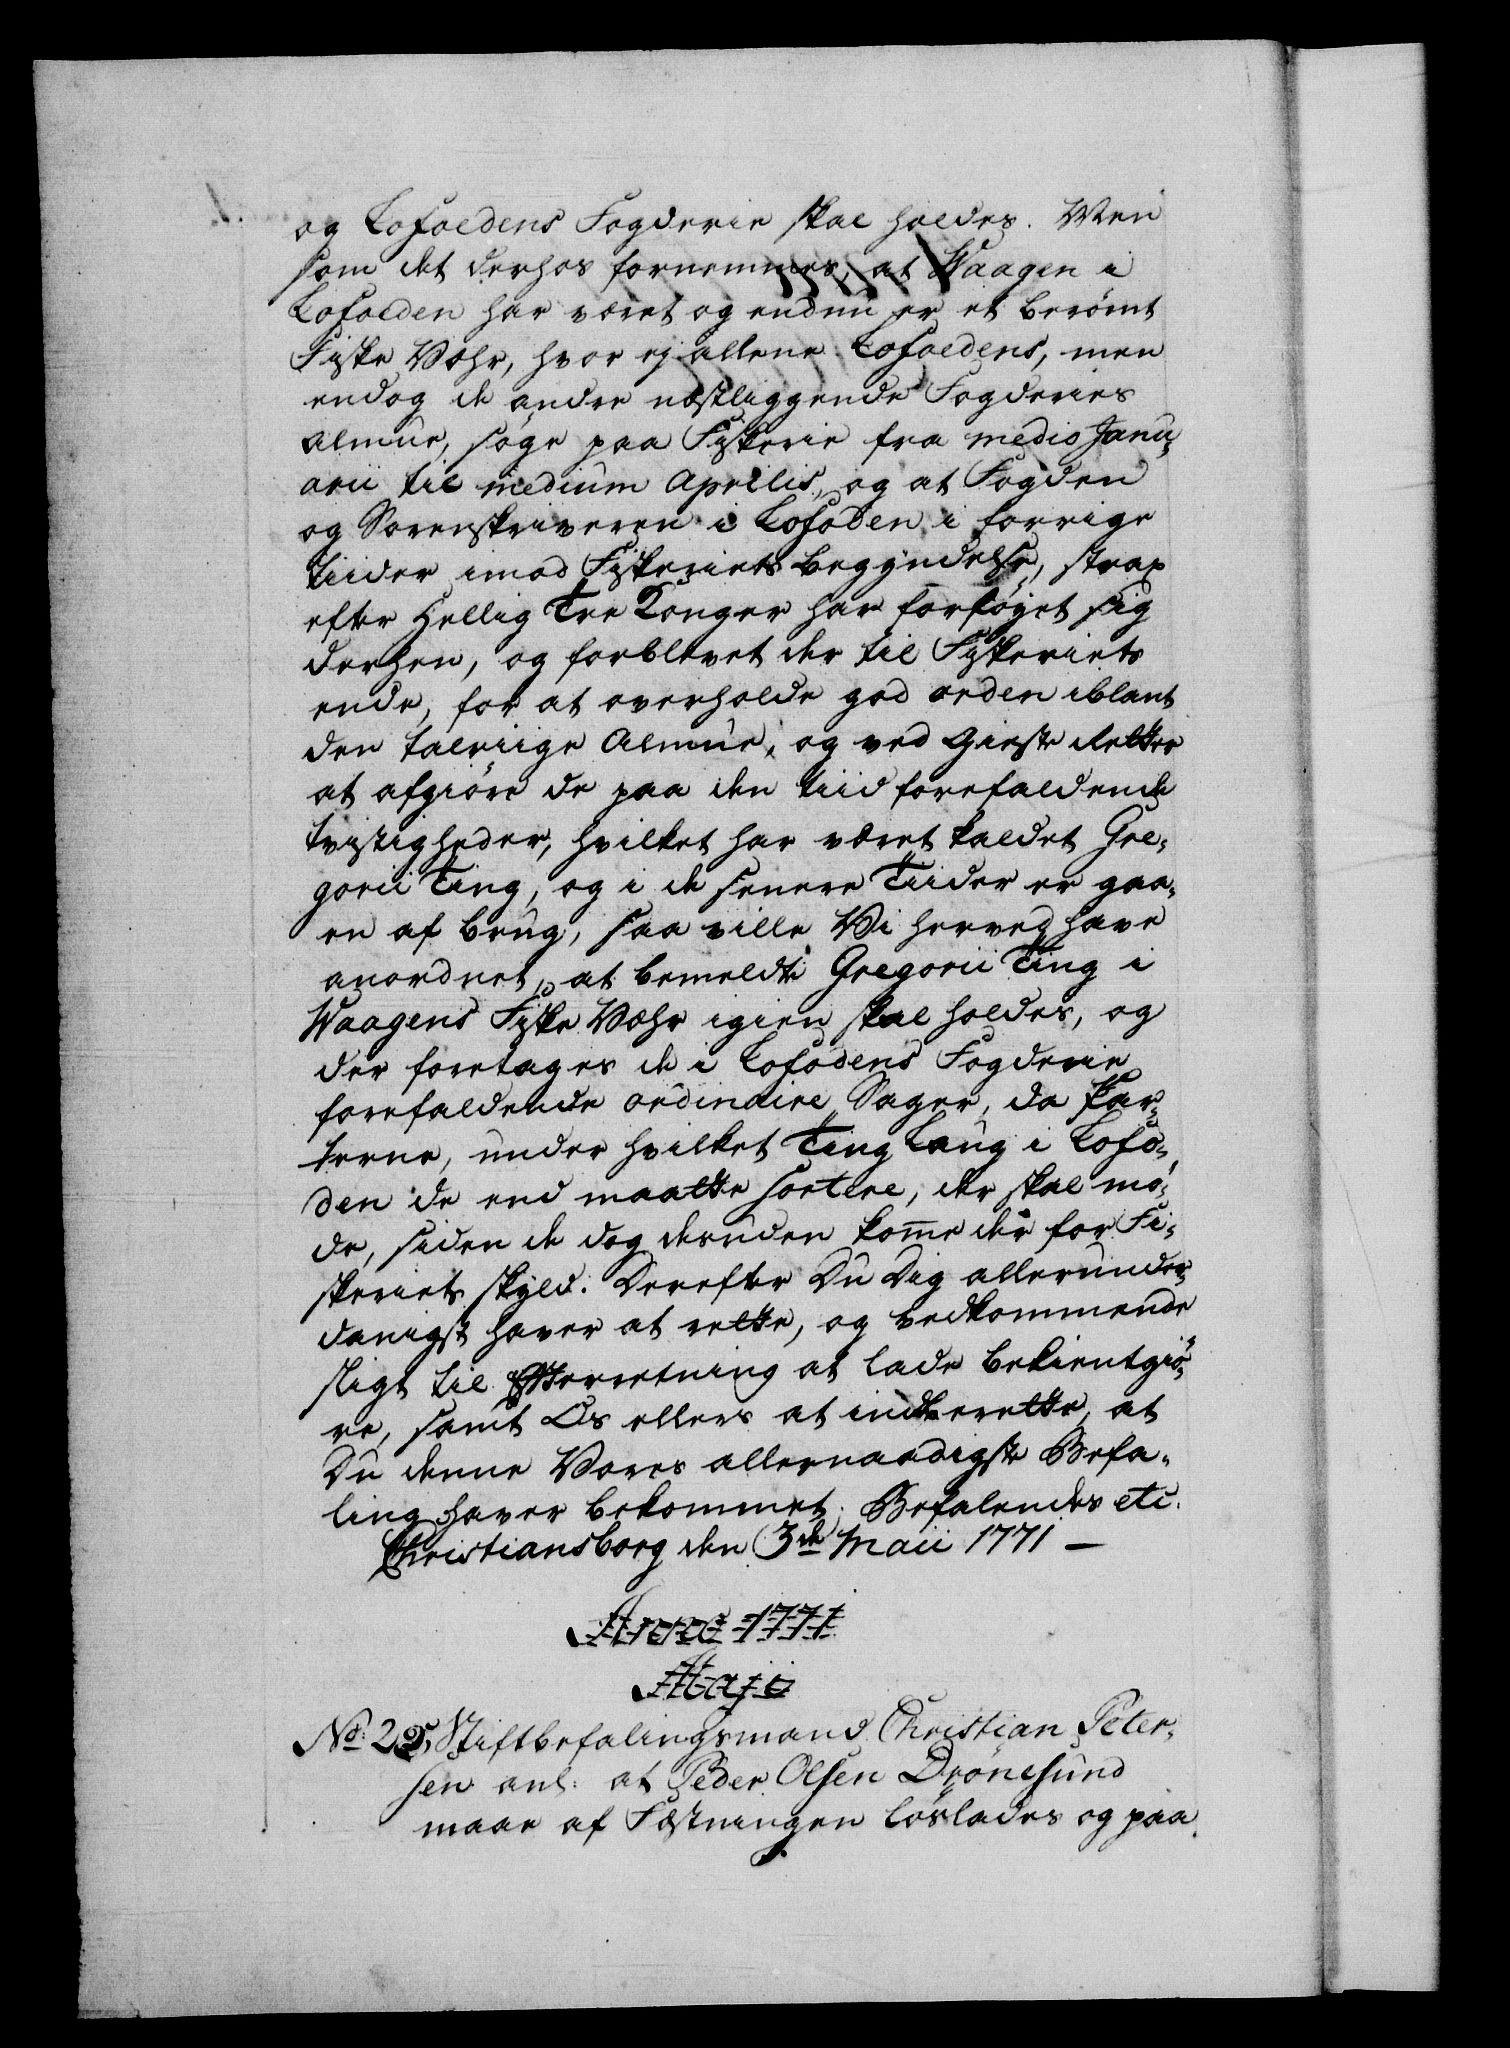 og Lofoedens Fogderie skal holdes. Men
som det derhos fornemmes, at Waagen i
Lofoeden har været og endnu er et berömt
Fiske Væhr, hvor ej allene Lofoedens, men
endog de andre næstliggende Fogderies
Almue, söge paa Fiskerie fra medio Janu-
arii til medium Aprilis, og at Fogden
og Sorenskriveren i Lofoden i forrige
tiider imod Fiskeriets begyndelse, strax
efter Hellig Tre Konger har forföyet sig
derhen, og forblevet der til Fiskeriets
ende, for at overholde god orden iblant
den talriige Almue, og ved Gieste Retter
at afgiöre de paa den tiid forefaldende
tvistigheder, hvilket har været kaldet Gre-
gorii Ting, og i de senere Tiider er gaa-
en af brug, saa ville Vi herved have
anordnet, at bemeldte Gregorii Ting i
Waagens Fiske Væhr igien skal holdes, og
der foretages de i Lofodens Fogderie
forefaldende ordinaire Sager, da Par-
terne, under hvilket Ting Laug i Lofo-
den de end maatte sortere, der skal mö-
de, siden de dog desuden kom̅e der for Fi-
skeriets skyld. Derefter Du Dig allerunder-
danigst haver at rette, og vedkommende
sligt til Efterretning at lade bekientgiö-
re, samt Os ellers at indberette, at
Du denne Vores allernaadigste Befa-
ling haver bekommet. Befalendes etc.
Christiansborg den 3de Maii 1771 –
Anno 1771
Majo
No. 25, Stiftbefalingsmand Christian Peter-
sen anl: at Peder Olsen Drönesund
maae af Fæstningen löslades og paa